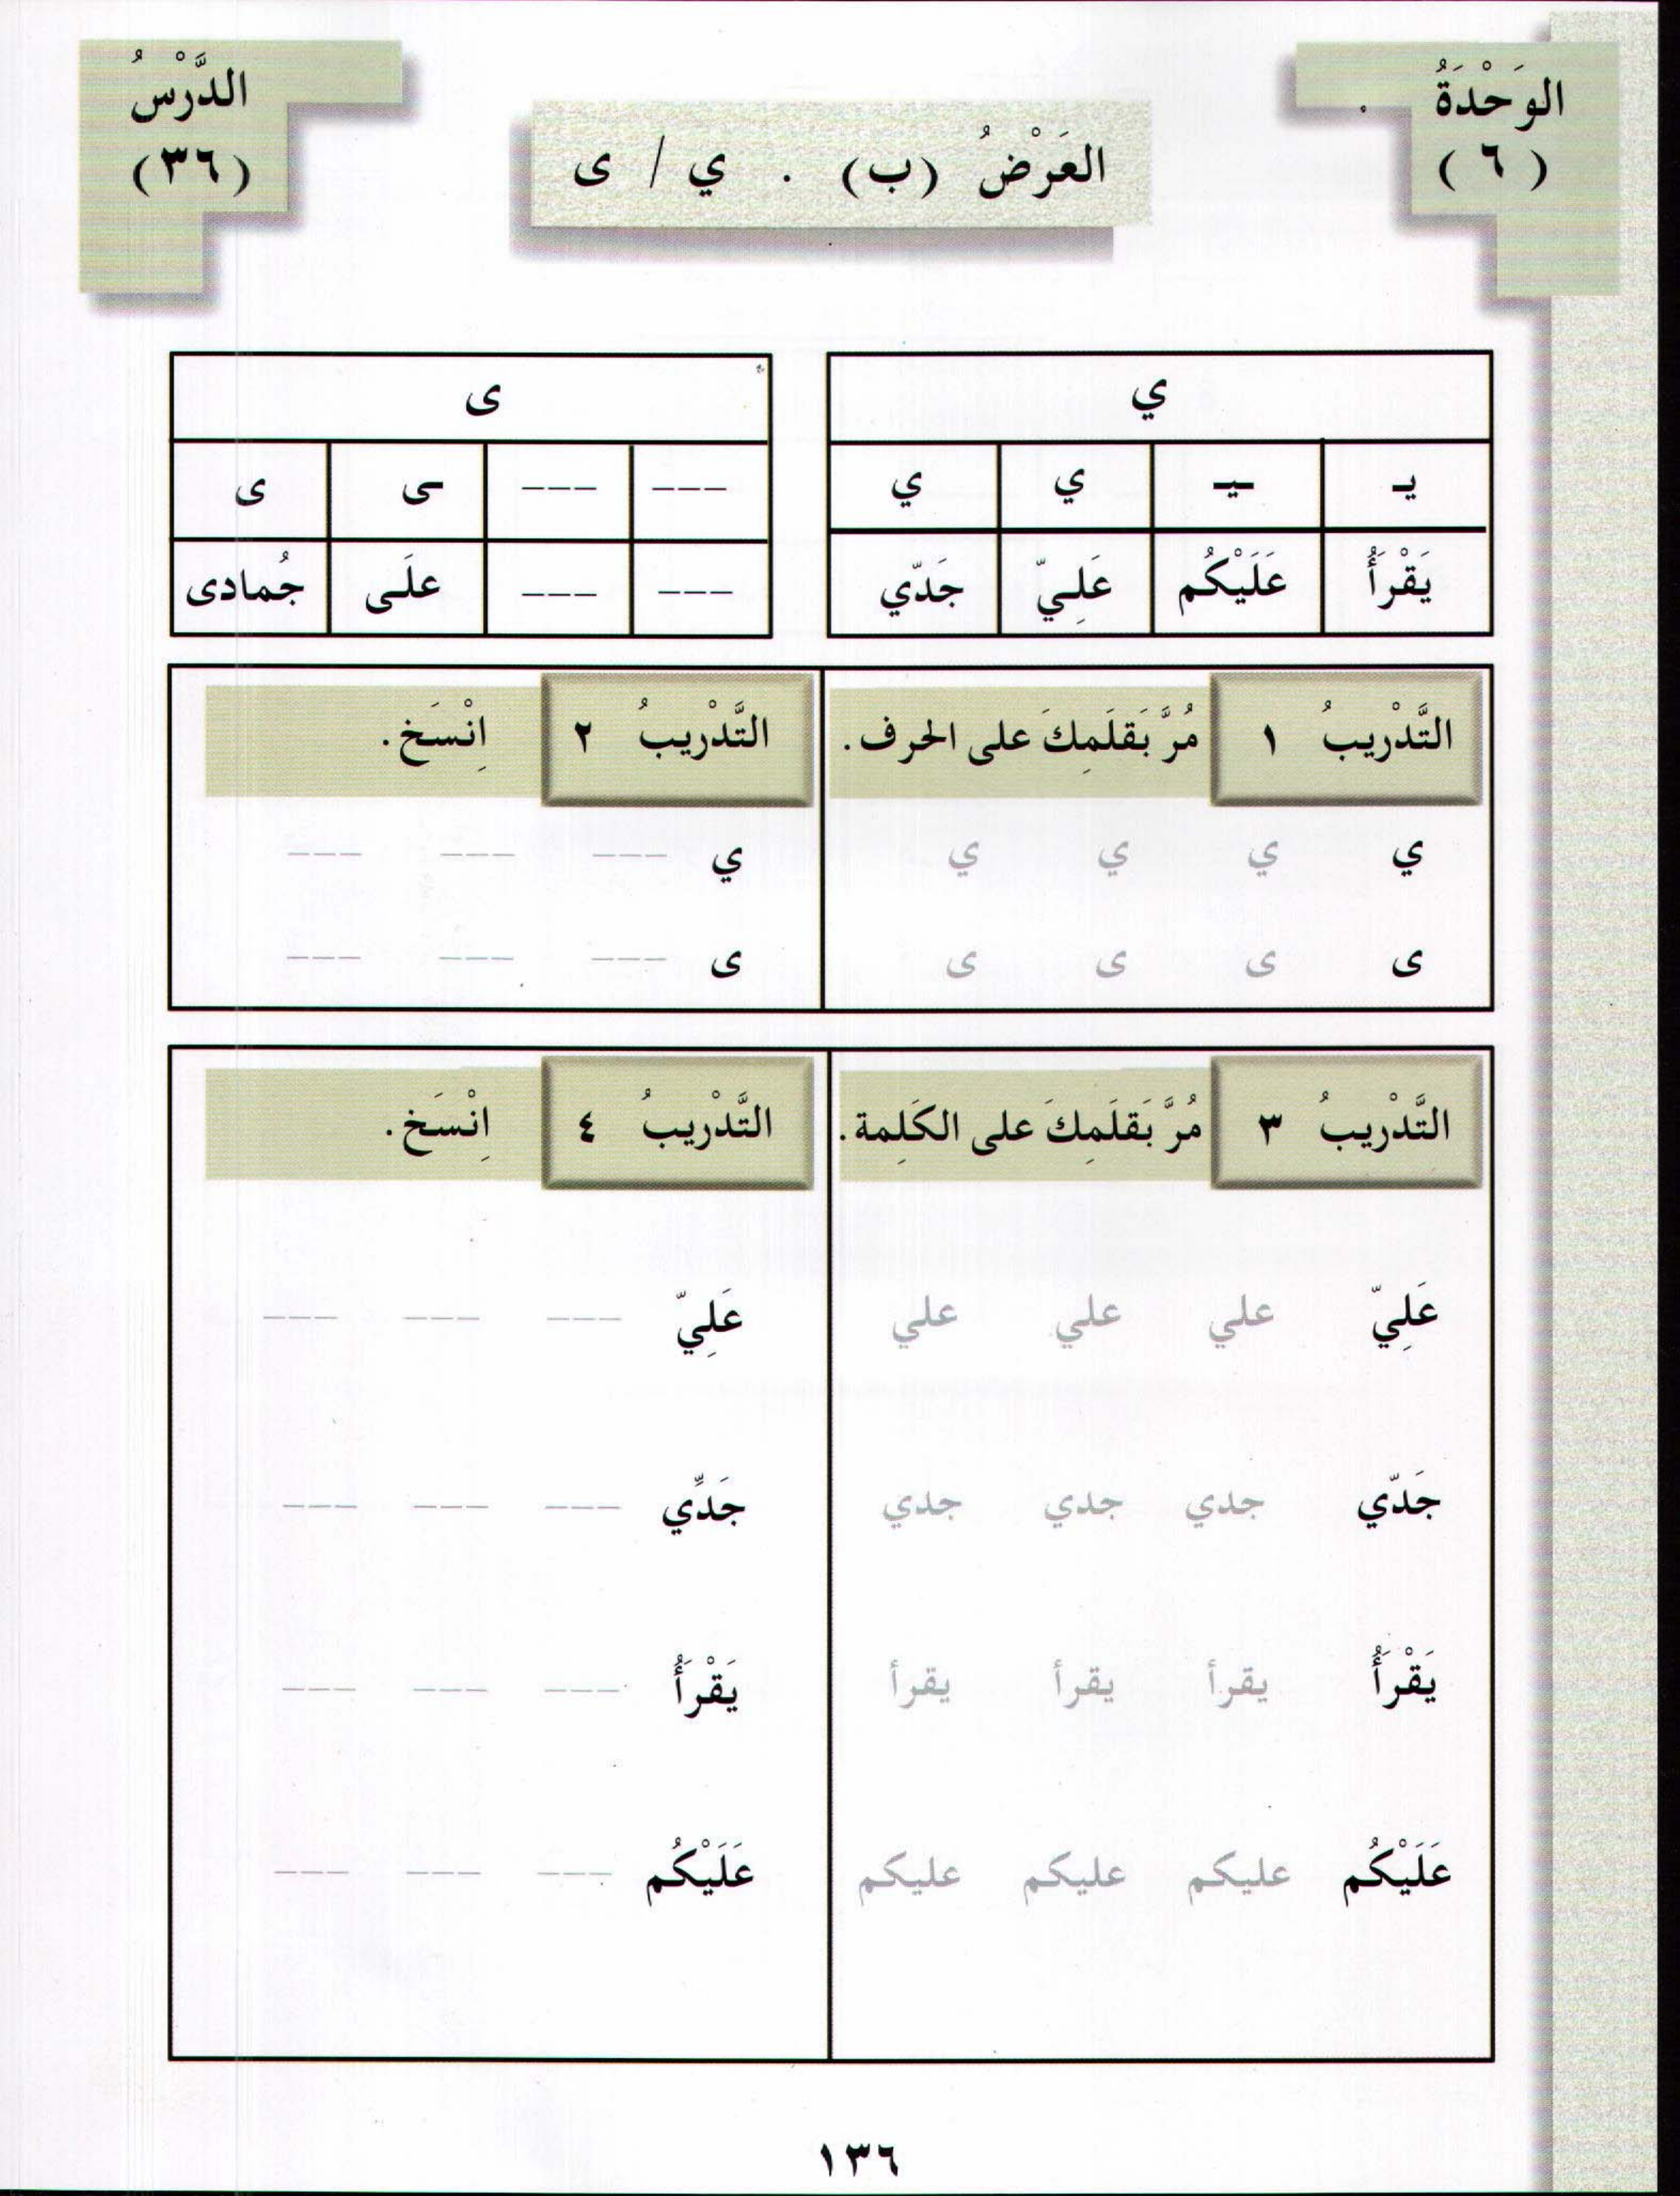 الوَحْدَةُ
( ٦ )
العَرْضُ (ب) . ي / ى
الدَّرْسُ
(٣٦)
ي
يـ ـيـ ي ي
يَقْرَأُ عَلَيْكُم عَلِيّ جَدّي
ى
--- --- ـى ى
--- --- علَى جُمادى
التَّدْرِيبُ ١ مُرَّ بَقلَمِكَ على الحرف.
ي ي ي ي
ى ى ى ى
التَّدْرِيبُ ٢ اِنْسَخ.
ي --- --- ---
ى --- --- ---
التَّدْرِيبُ ٣ مُرَّ بَقلَمِكَ على الكَلِمة.
عَلِيّ علي علي علي
جَدّي جدي جدي جدي
يَقْرَأُ يقرأ يقرأ يقرأ
عَلَيْكُم عليكم عليكم عليكم
التَّدْرِيبُ ٤ اِنْسَخ.
عَلِيّ --- --- ---
جَدِّي --- --- ---
يَقْرَأُ --- --- ---
عَلَيْكُم --- --- ---
١٣٦